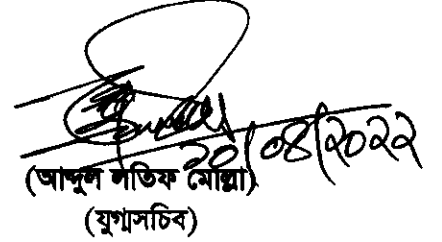 ২০/০৪/২০২২
(আব্দুল লতিফ মোল্লা)
(যুগ্মসচিব)